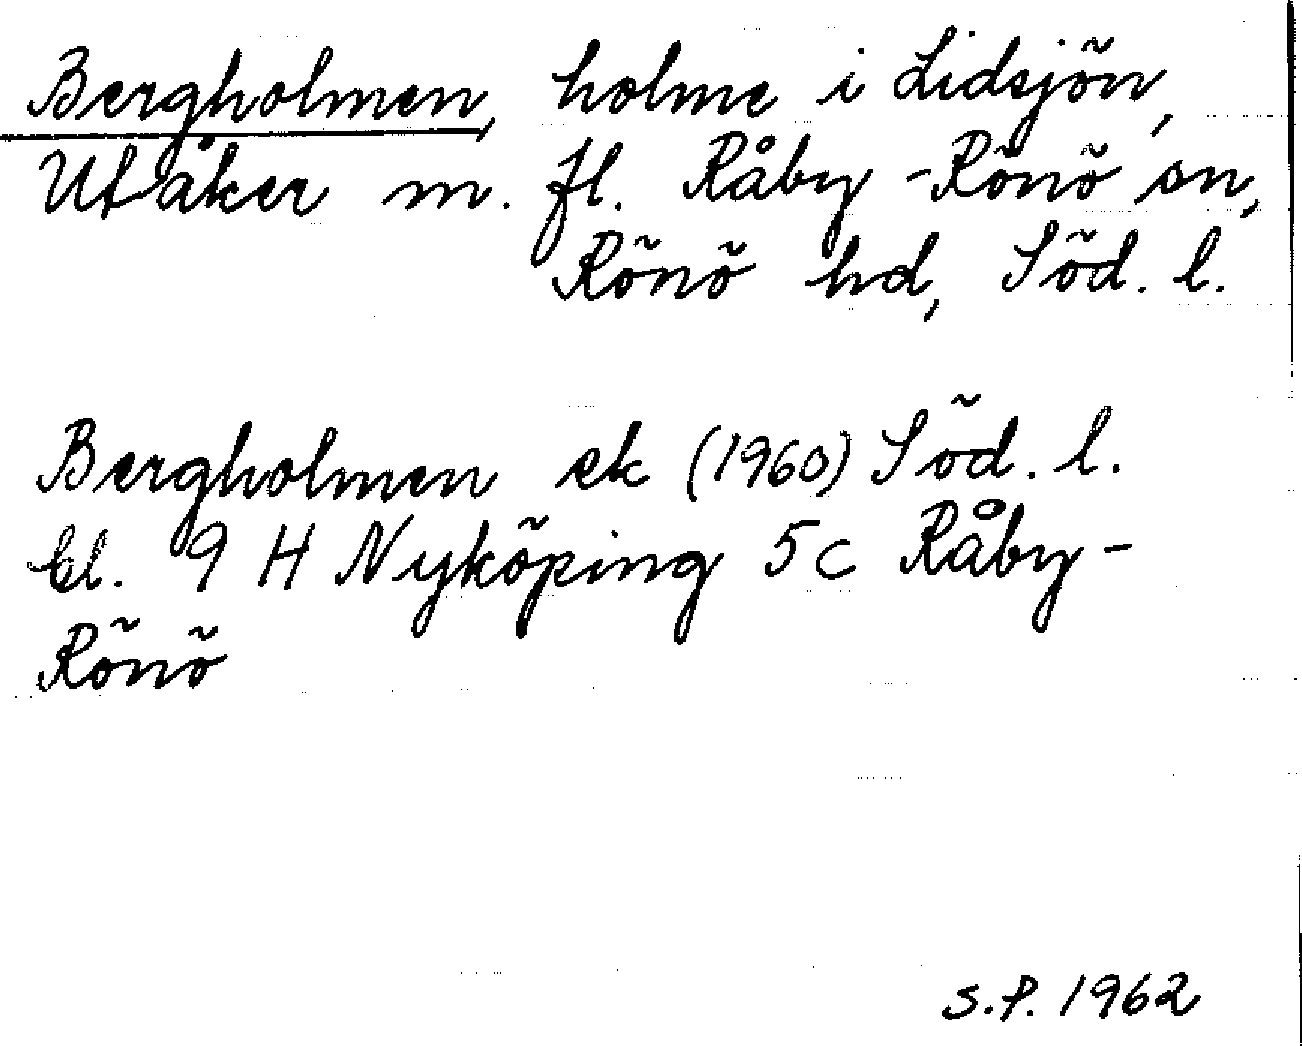 Bergholmen, holme i Lidsjön,
Utåker m. fl. Råby-Rönö sn,
Rönö hd, Söd. l.
Bergholmen ek (1960) Söd. l.
bl. 9 H Nyköping 5c Råby-
Rönö
S.P. 1962